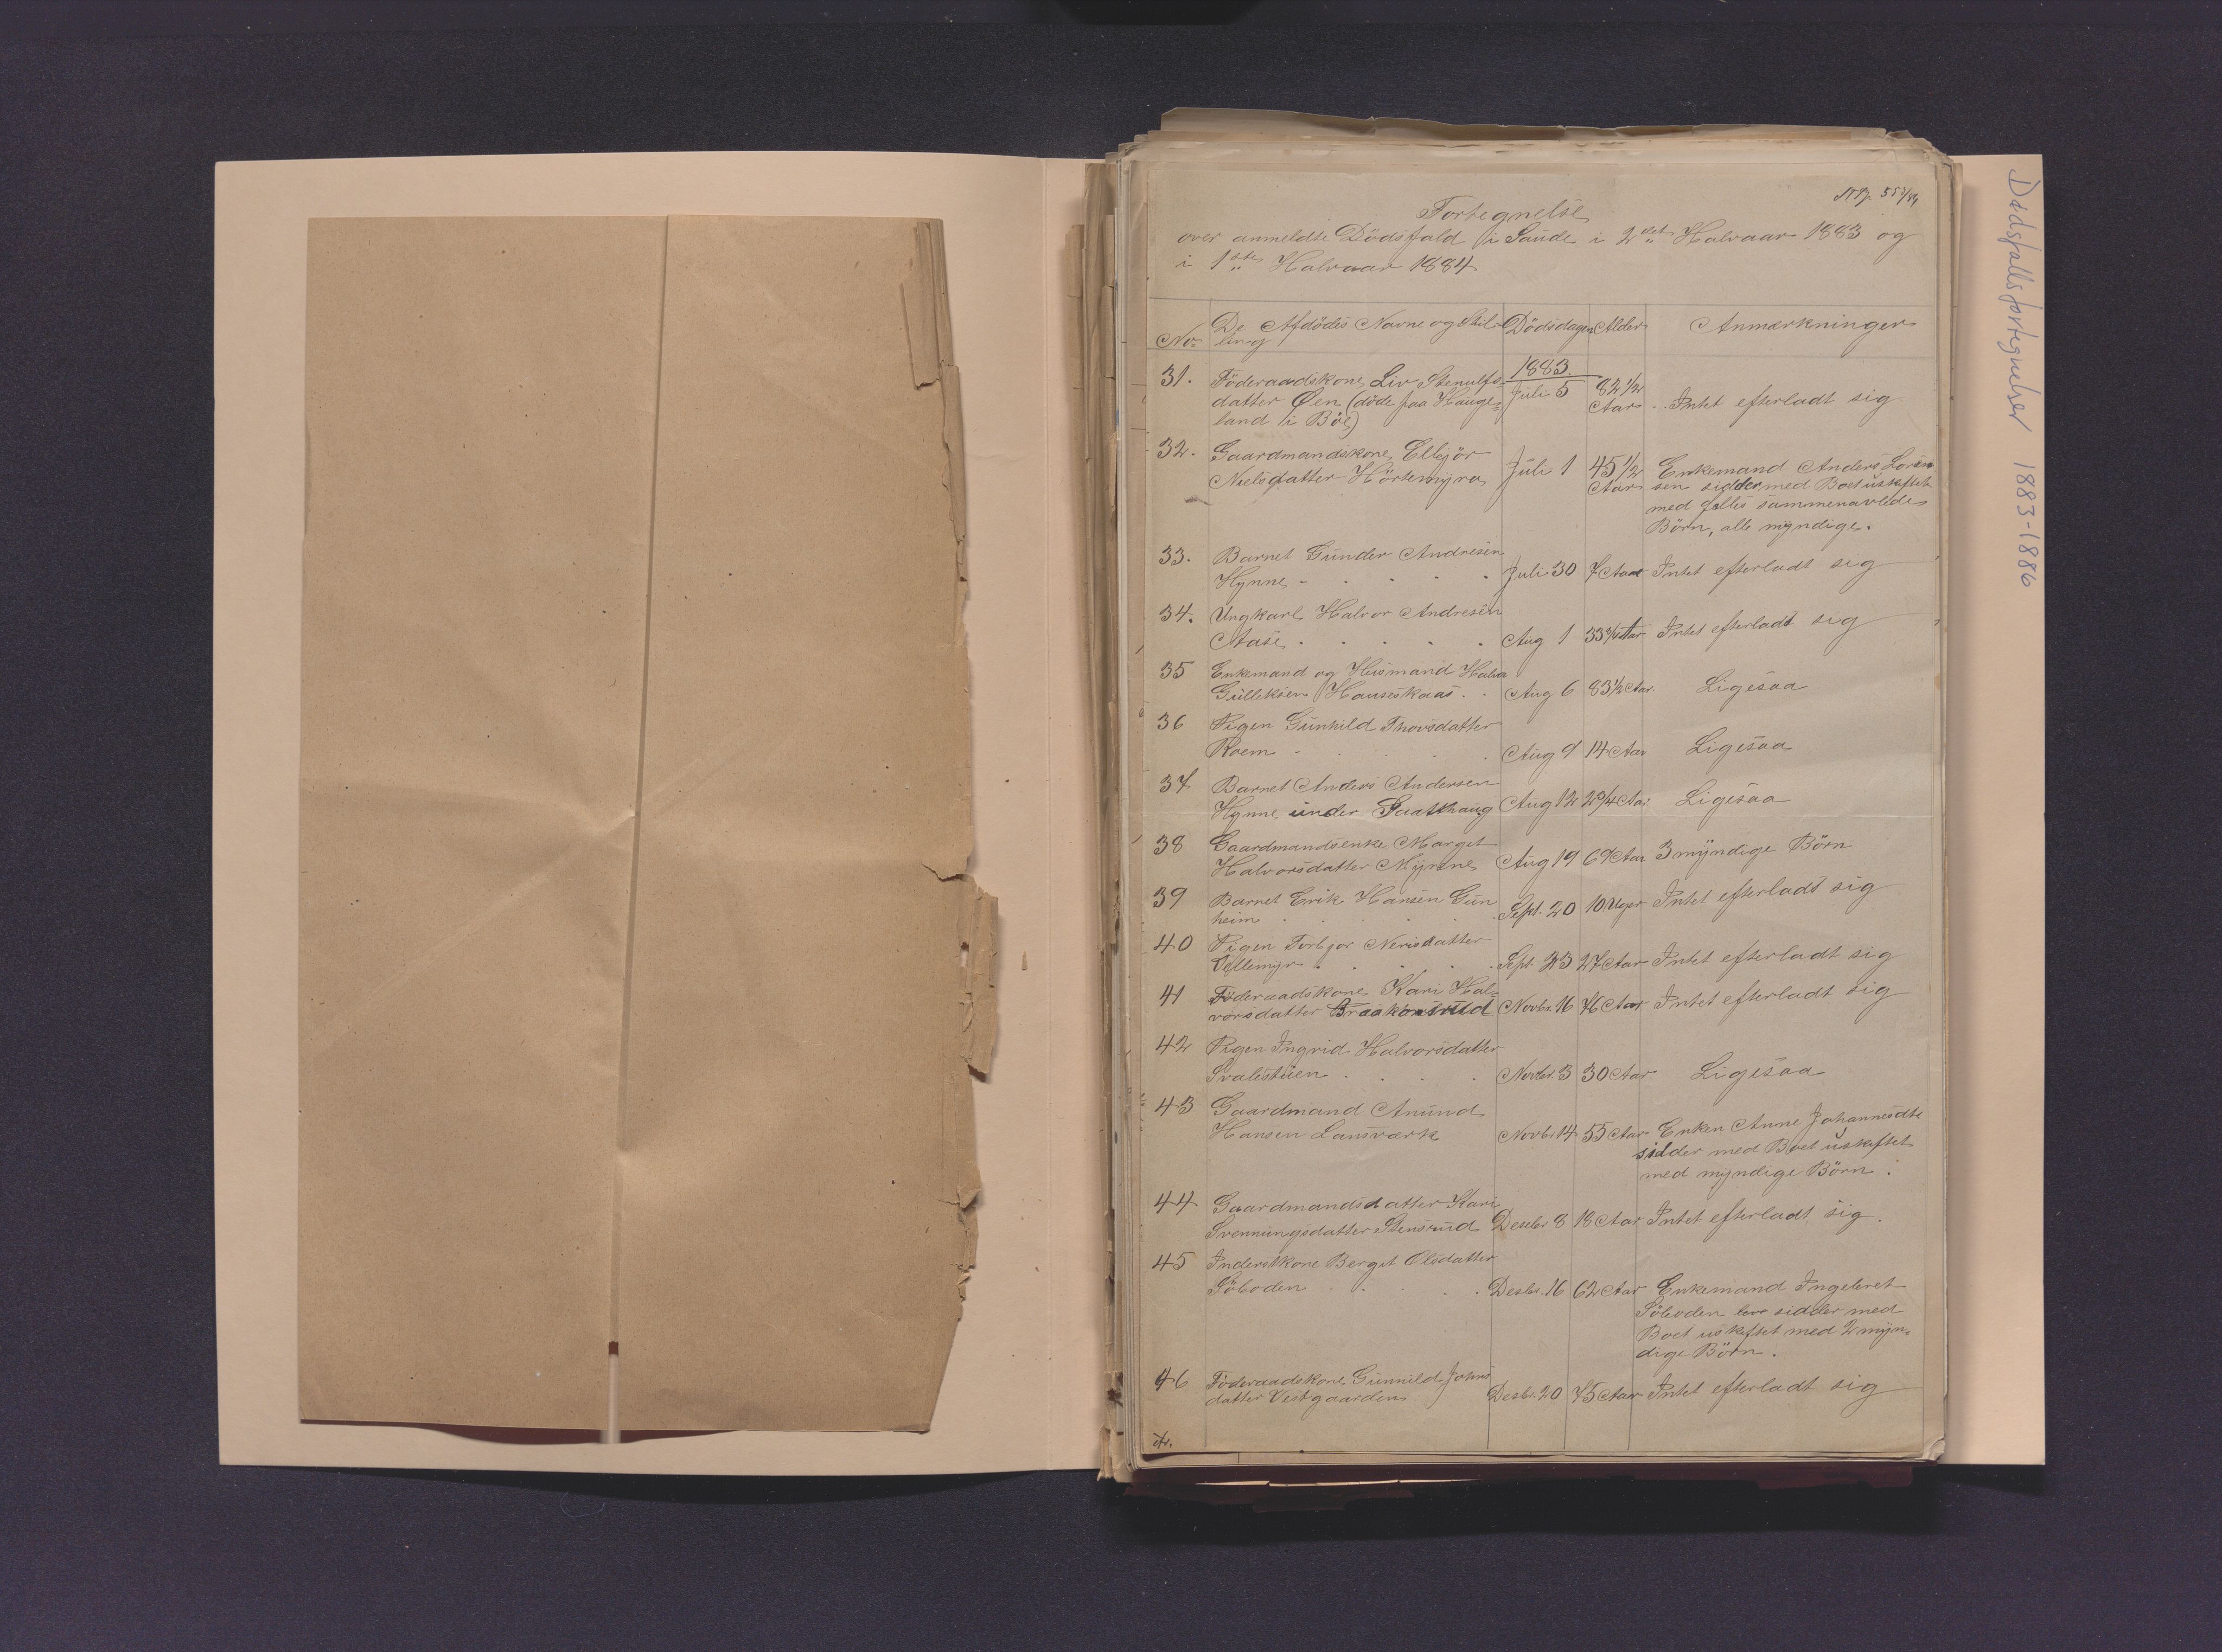 Fortegnelse
over anmeldte Dödsfald i Saude i 2det Halvaar 1883 og
i 1ste Halvaar 1884
No. De Afdödes Navne og Stil- Dödsdagen Alder Anmærkninger
ling
1883.
31. Föderaadskone Liv Stenulfs- Juli 5 82 1/2
datter Øen (döde paa Hauge- Aar Intet efterladt sig
land i Bö)
32. Gaardmandskone Elbjör
Nielsdatter Hörtemyra Juli 1 45 1/2 Enkemand Anders Loren
Aar sen sidder med Boet uskiftet
med fælles sammenavlede
Börn, alle myndige.
33. Barnet Gunder Andresen
Hynne Juli 30 7 Aar Intet efterladt sig
34. Ungkarl Halvor Andresen
Aase Aug 1 33 3/4 Aar Intet efterladt sig
35 Enkemand og Husmand Halvor
Gulleksen Hauseskaas Aug 6 83 1/2 Aar. Ligesaa
36 Pigen Gunhild Thovsdatter
Roem Aug 9 14 Aar Ligesaa
37 Barnet Anders Andersen
Hynne under Saatthaug Aug 12 2 3/4 Aar. Ligesaa
38 Gaardmandsenke Marget
Halvorsdatter Myrene Aug 19 69 Aar 3 myndige Börn
39 Barnet Erik Hansen Gun
heim Sept. 20 10 Uger Intet efterladt sig
40 Pigen Torbjor Nerisdatter
Vellemyr Sept. 23 27 Aar Intet efterladt sig
41 Föderaadskone Kari Hal-
vorsdatter Braakonsrud Novbr. 16 76 Aar Intet efterladt sig
42 Pigen Ingrid Halvorsdatter
Svalestuen Novbr. 3 30 Aar Ligesaa
43 Gaardmand Anund
Hansen Lansværk Novbr. 14 55 Aar Enken Anne Johannesdtr
sidder med Boet uskiftet
med myndige Börn.
44 Gaardmandsdatter Kari
Svenningsdatter Stensrud Desebr 8 18 Aar Intet efterladt sig.
45 Inderstkone Bergit Olsdatter
Söboden Desbr. 16 62 Aar Enkemand Ingebret
Söboden sidder med
Boet uskiftet med 2 myn-
dige Börn.
46 Föderaadskone Gunnild Johns
datter Vestgaarden Desbr. 20 75 Aar Intet efterladt sig
Dødsfallsfortegnelser 1883-1886